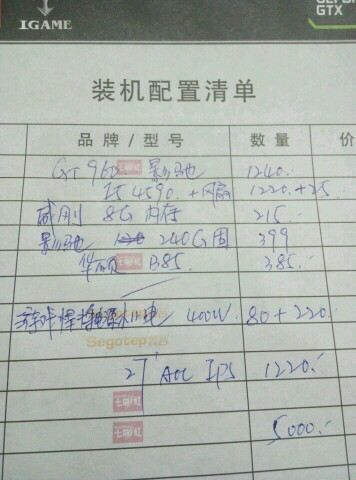 IGAME
GTX
装机配置清单
品牌/型号 数量 价
GT 960 影驰 1240.
I5 4590. +风扇 1220.+25.
威刚 8G 内存 215.
影驰 240G 固 399
华硕 B85. 385.
游戏悍将 400W. 80+220.
Segotep
27' AOC IPS 1220.
七彩虹
七彩虹
5000.